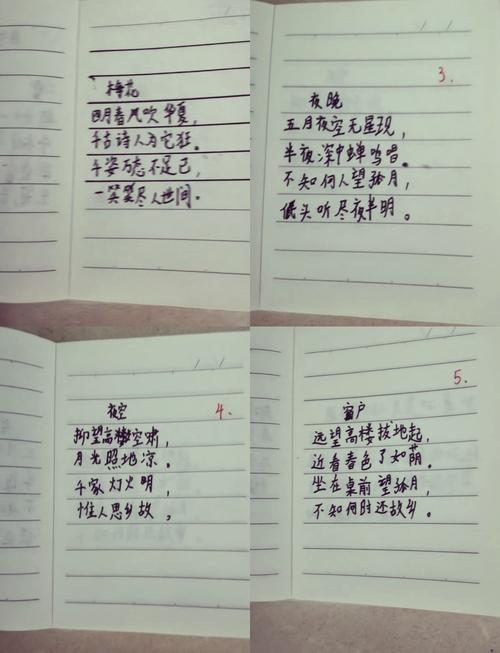 梅花
四月春风吹华夏,
千古诗人为它狂.
千姿万态不足已,
一笑笑尽人世间.
3.
夜晚
五月夜空无星现,
半夜深中蝉鸣唱.
不知何人望孤月,
低头听尽夜半明。
夜空
4.
抑望高楼空肃,
月光照地凉。
千家灯火明,
惟人思乡故。
5.
窗户
远望高楼拔地起,
近看春色了如荫。
坐在桌前望孤月,
不知何时还故乡。